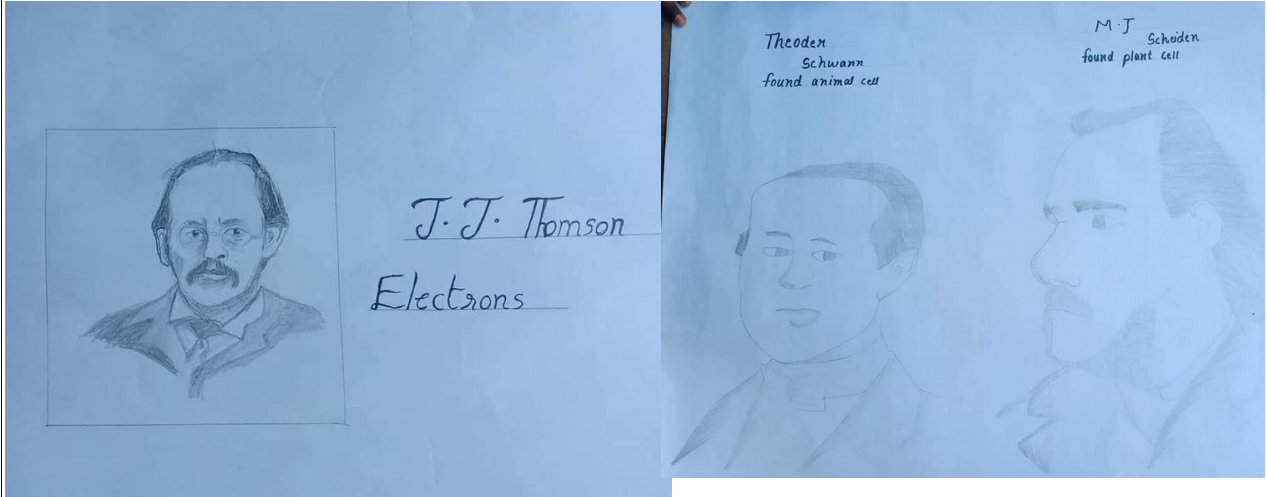 J. J. Thomson
Electrons
Theoder
Schwann
found animal cell
M.J
Scheiden
found plant cell